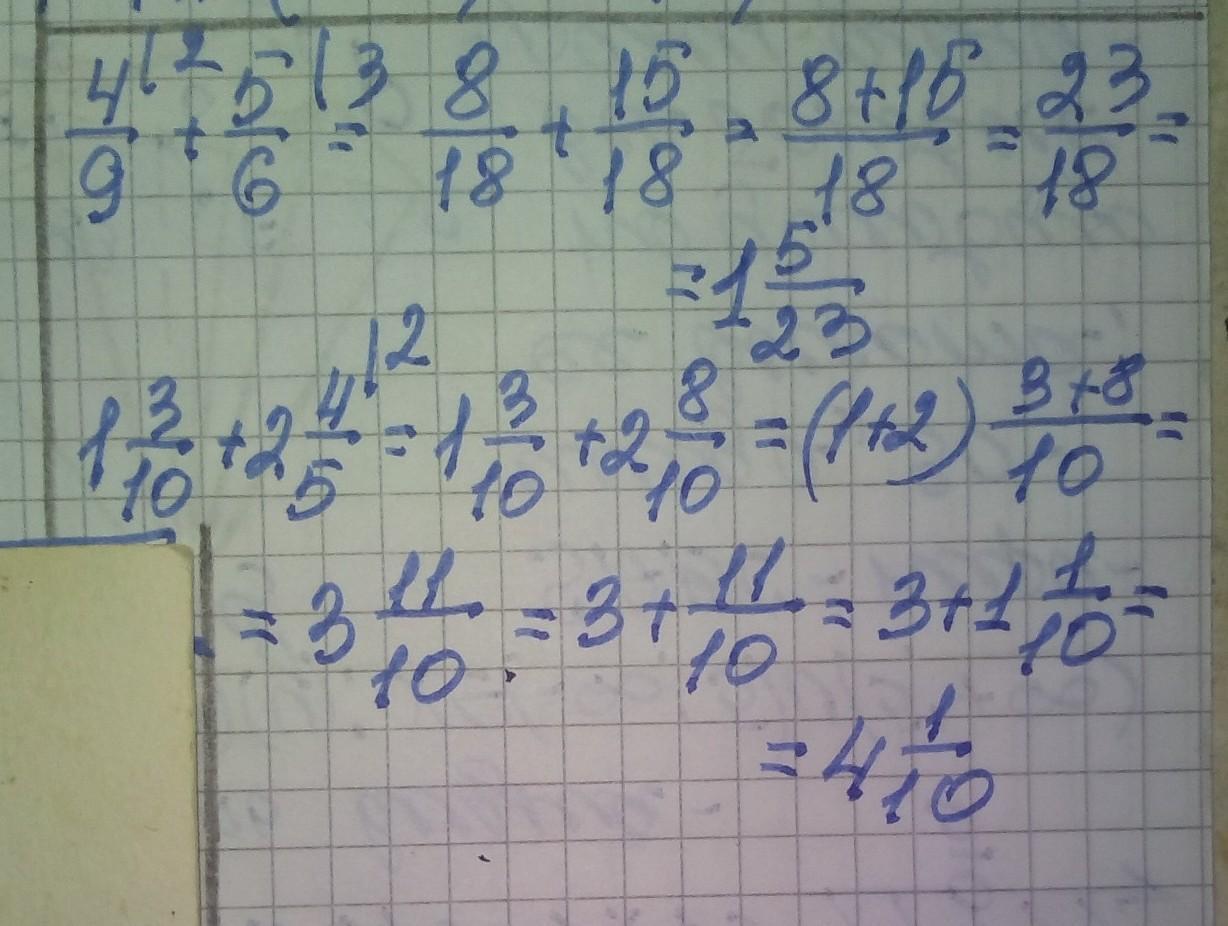 4/9 |2 + 5/6 |3 = 8/18 + 15/18 = 8+15/18 = 23/18 =
= 1 5/23
1 3/10 + 2 4/5 |2 = 1 3/10 + 2 8/10 = (1+2) 3+8/10 =
= 3 11/10 = 3 + 11/10 = 3 + 1 1/10 =
= 4 1/10